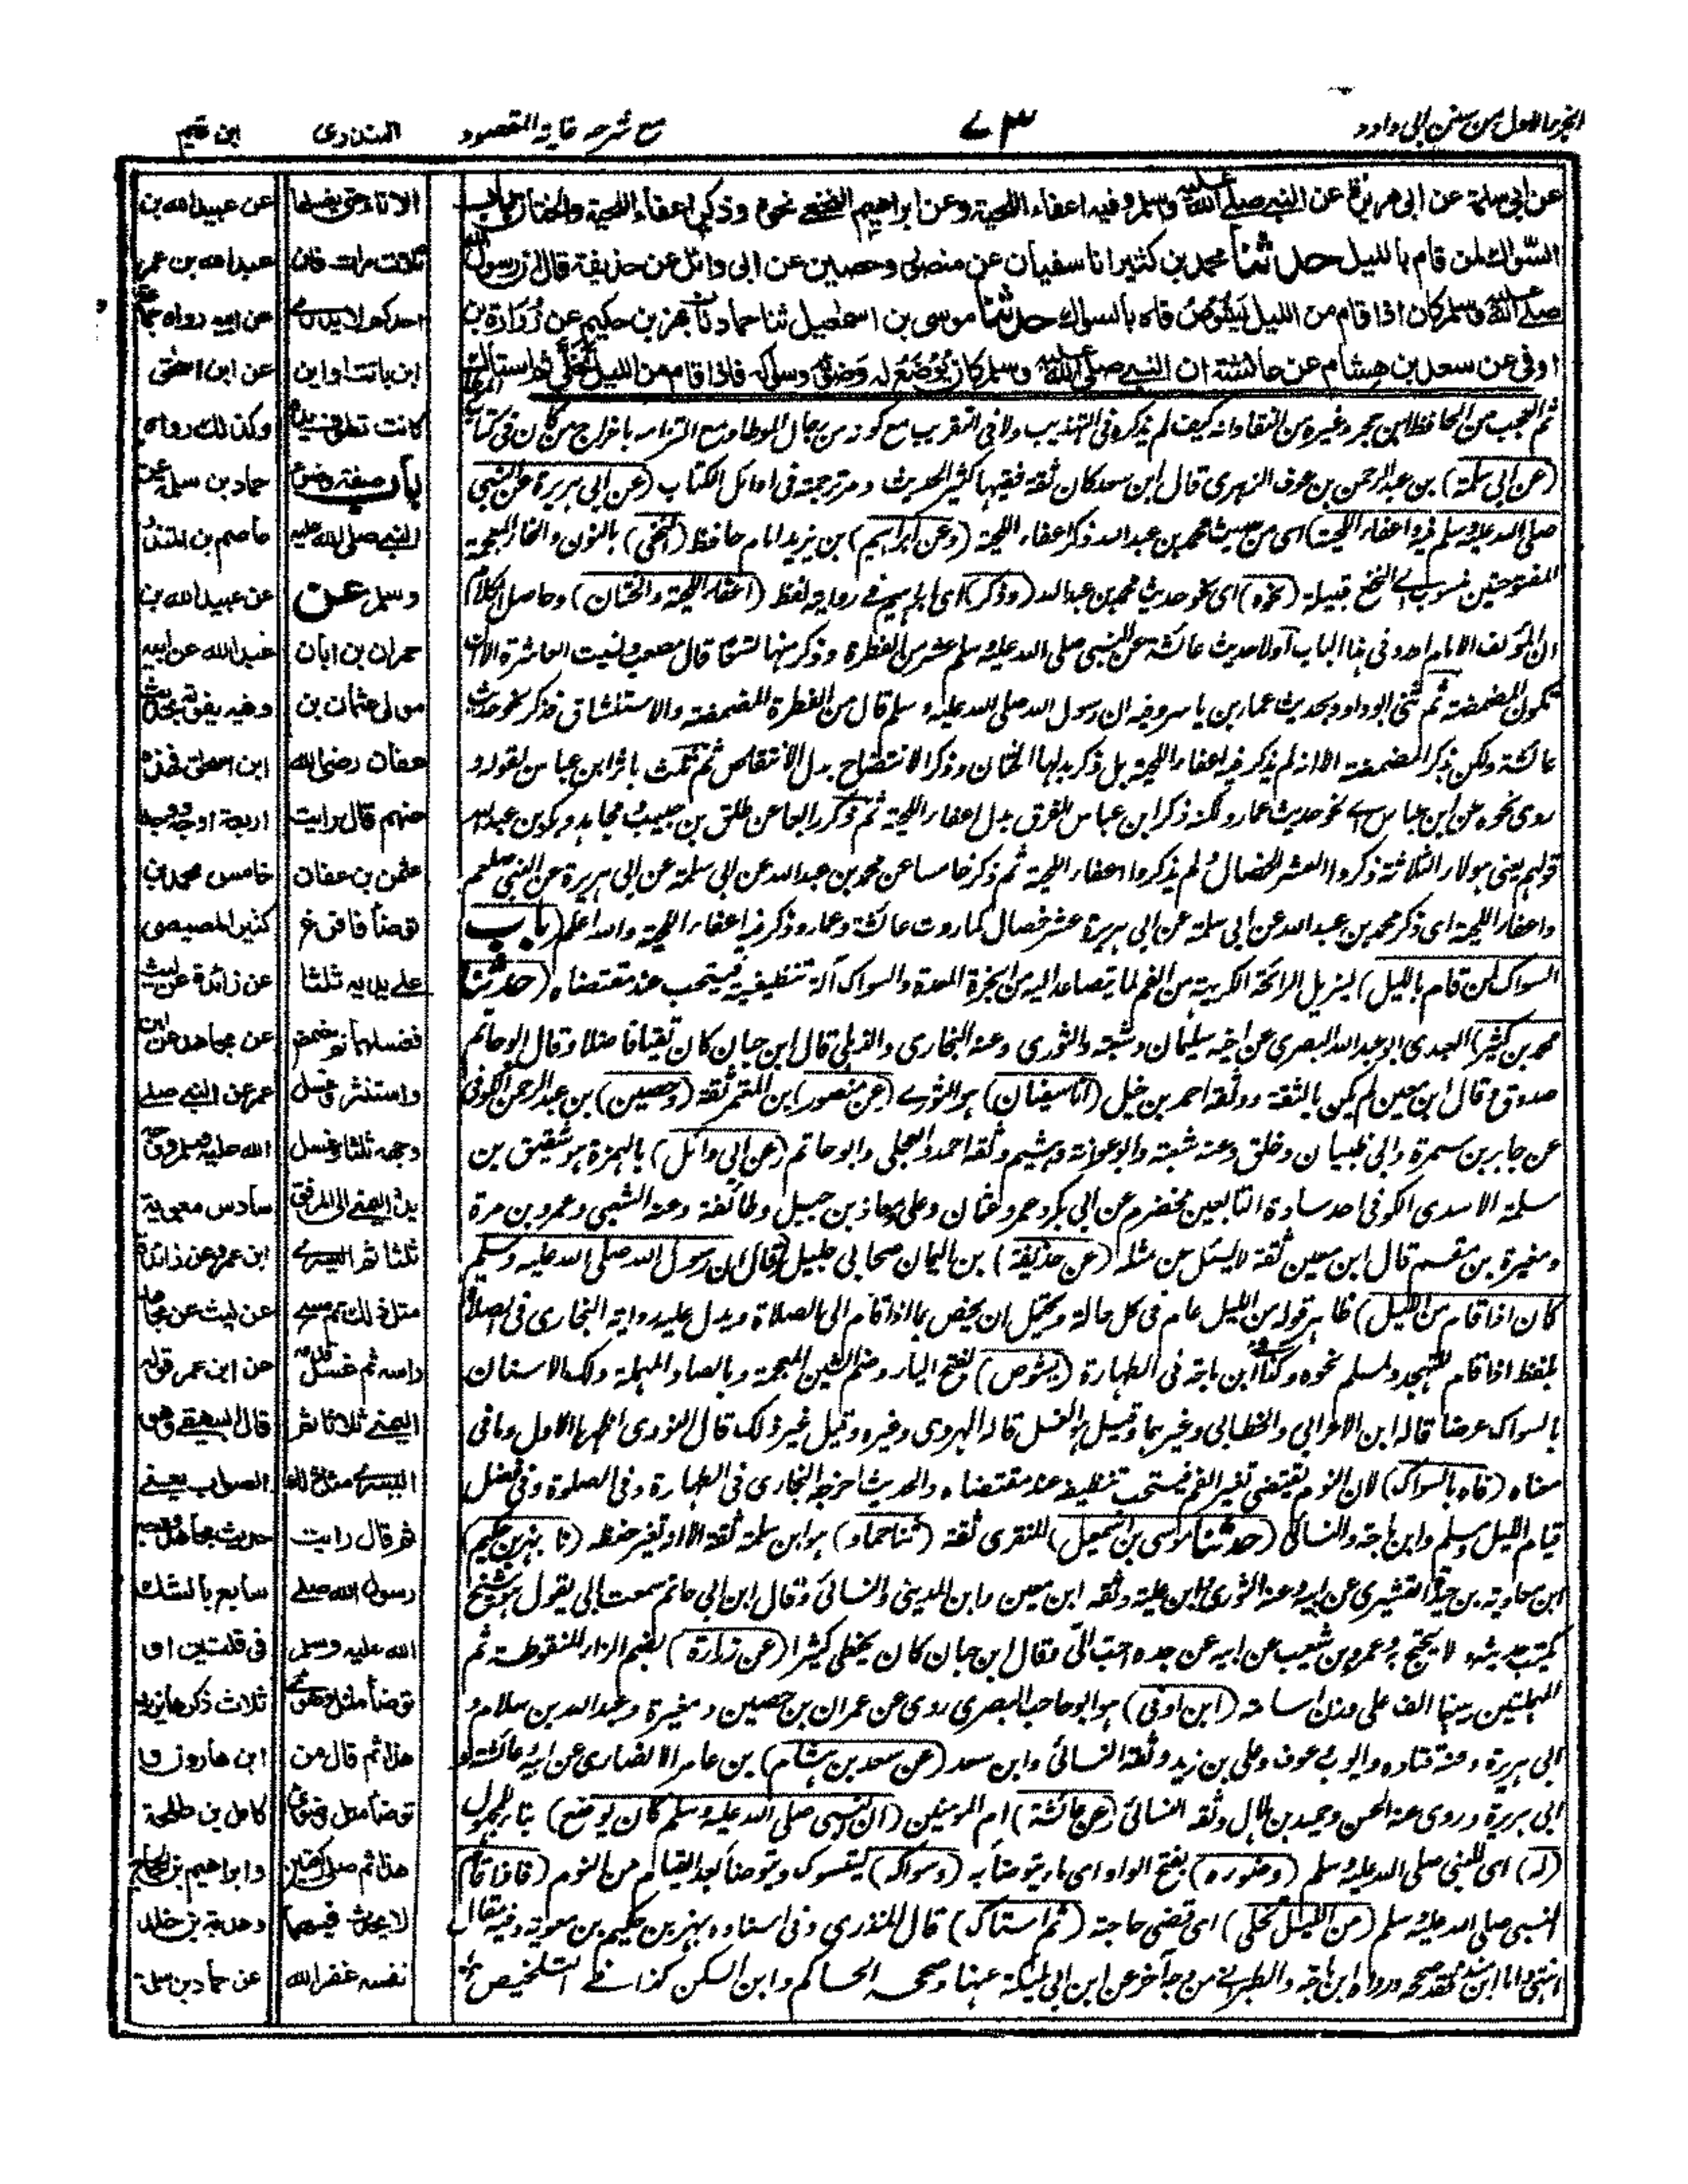 الجزء الاول من سنن ابي داود
٧٣
مع شرحه غاية المقصود
المنذرى
ابن قيم
عن ابى سلمة عن ابى هريرة عن النبي صلى الله عليه وسلم وفيه اعفاء اللحية وعن ابراهيم النخعي نحوه وذكر اعفاء اللحية والختان باب
السواك لمن قام بالليل حدثنا محمد بن كثير انا سفيان عن منصور وحصين عن ابى وائل عن حذيفة قال ان رسول الله
صلى الله عليه وسلم كان اذا قام من الليل يشوص فاه بالسواك حدثنا موسى بن اسمعيل ثنا حماد نا بهز بن حكيم عن زرارة بن
اوفى عن سعد بن هشام عن عائشة ان النبي صلى الله عليه وسلم كان يوضع له وضوءه وسواكه فاذا قام من الليل تخلى ثم استاك
ثم العجب من الحافظ ابن حجر وغيره من النقاد انه كيف لم يذكره فى التهذيب ولا فى التقريب مع كونه من رجال الموطا ومع التزامه باخراج من كان فى كتاب
(عن ابي سلمة) بن عبد الرحمن بن عوف الزهرى قال ابن سعد كان ثقة فقيها كثير الحديث ومر ترجمته فى اوائل الكتاب (عن ابي هريرة عن النبي
صلى الله عليه وسلم فيه واعفاء اللحية) اى من حديث محمد بن عبد الله ذكر اعفاء اللحية (وعن ابراهيم) بن يزيد امام حافظ (النخعي) بالنون والخاء المعجمة
المفتوحتين منسوب الى النخع قبيلة (نحوه) اى نحو حديث محمد بن عبد الله (وذكر) اى ابراهيم فى روايته لفظ (اعفاء اللحية والختان) وحاصل الكلام
ان المؤلف الامام اورد فى هذا الباب اولا حديث عائشة عن النبي صلى الله عليه وسلم عشر من الفطرة وذكر منها تسعًا قال مصعب ونسيت العاشرة الا ان
تكون المضمضة ثم ثنى ابو داود بحديث عمار بن ياسر وفيه ان رسول الله صلى الله عليه وسلم قال من الفطرة المضمضة والاستنشاق فذكر نحو حديث
عائشة ولكن ذكر المضمضة الا انه لم يذكر فيه اعفاء اللحية بل ذكر بدلها الختان وذكر الانتضاح بدل الانتقاص ثم ثلث باثر ابن عباس لقوله و
روى نحوه عن ابن عباس اى نحو حديث عمار ولكنه ذكر ابن عباس الفرق بدل اعفاء اللحية ثم ذكر رابعا عن طلق بن حبيب ومجاهد وبكر بن عبد الله
قولهم يعنى هولاء الثلاثة ذكروا العشر الخصال ولم يذكروا اعفاء اللحية ثم ذكر خامسا عن محمد بن عبد الله عن ابي سلمة عن ابي هريرة عن النبي صلعم
واعفاء اللحية اى ذكر محمد بن عبد الله عن ابي سلمة عن ابي هريرة عشر خصال كما روت عائشة وعمار وذكر فيه اعفاء اللحية والله اعلم (باب
السواك لمن قام بالليل) ليزيل الرائحة الكريهة من الفم لما يتصاعد اليه من ابخرة المعدة والسواك آلة تنظيفية فيستحب عند مقتضاه (حدثنا
محمد بن كثير) العبدى ابو عبد الله البصرى عن اخيه سليمان وشعبة والثورى وعنه البخارى والذهلى قال ابن حبان كان تقيًا فاضلا وقال ابو حاتم
صدوق وقال ابن معين لم يكن بالثقة ووثقه احمد بن حنبل (انا سفيان) هو الثورى (عن منصور) ابن المعتمر ثقة (وحصين) بن عبد الرحمن الكوفى
عن جابر بن سمرة وابي ظبيان وخلق وعنه شعبة وابو عوانة وهشيم وثقه احمد والعجلى وابو حاتم (عن ابي وائل) بالهمزة هو شقيق بن
سلمة الاسدى الكوفى احد سادة التابعين مخضرم عن ابي بكر وعمر وعثمان وعلى ومعاذ بن جبل وطائفة وعنه الشعبى وعمرو بن مرة
ومغيرة بن مقسم قال ابن معين ثقة لا يسئل عن مثله (عن حذيفة) بن اليمان صحابي جليل (قال ان رسول الله صلى الله عليه وسلم
كان اذا قام من الليل) ظاهر قوله من الليل عام فى كل حالة ويحتمل ان يخص بما اذا قام الى الصلاة ويدل عليه رواية البخارى فى الصلاة
بلفظ اذا قام للتهجد ولمسلم نحوه وكذا ابن ماجة فى الطهارة (يشوص) بفتح الياء وضم الشين المعجمة وبالصاد المهملة دلك الاسنان
بالسواك عرضا قاله ابن الاعرابي والخطابي وغيرهما وقيل هو الغسل قاله الهروى وغيره وقيل غير ذلك قال النووى اظهرها الاول وما فى
معناه (فاه بالسواك) لان النوم يقتضى تغير الفم فيستحب تنظيفه عند مقتضاه والحديث اخرجه البخارى فى الطهارة وفى الصلوة وفى فضل
قيام الليل ومسلم وابن ماجة والنسائى (حدثنا موسى بن اسمعيل) المنقرى ثقة (ثنا حماد) هو ابن سلمة ثقة الا انه تغير حفظه (نا بهز بن حكيم)
ابن معاوية بن حيدة القشيرى عن ابيه وعنه الثورى وابن علية وثقه ابن معين وابن المدينى والنسائى وقال ابن ابي حاتم سمعت ابي يقول هو شيخ
يكتب حديثه ولا يحتج به وعمرو بن شعيب عن ابيه عن جده احب الىّ وقال ابن حبان كان يخطى كثيرا (عن زرارة) بضم الزاء المنقوطة ثم
المهملتين بينهما الف على وزن اسامة (ابن اوفى) هو ابو حاجب البصرى روى عن عمران بن حصين ومغيرة وعبد الله بن سلام و
ابي هريرة وعنه قتادة وايوب وعوف وعلى بن زيد وثقه النسائى وابن سعد (عن سعد بن هشام) بن عامر الانصارى عن ابيه وعائشة و
ابي هريرة وروى عنه الحسن وحميد بن هلال وثقه النسائى (عن عائشة) ام المومنين (ان النبي صلى الله عليه وسلم كان يوضع) بناء المجهول
(له) اى للنبي صلى الله عليه وسلم (وضوءه) بفتح الواو اى ماء يتوضأ به (وسواكه) ليتسوك ويتوضأ بعد القيام من النوم (فاذا قام)
النبي صلى الله عليه وسلم (من الليل تخلى) اى قضى حاجة (ثم استاك) قال المنذرى وفى اسناده بهز بن حكيم بن معوية وفيه مقال
انتهى واما ابن مندة فقد صححه ورواه ابن ماجة والطبراني من وجه آخر عن ابن ابي مليكة عنها وصححه الحاكم وابن السكن كذا فى التلخيص
الاناء حتى يغسلها
ثلاث مرات فان
احدكم لا يدرى
اين باتت او اين
كانت تطوف يده
باب صفة وضوء
النبي صلى الله عليه
وسلم عن
حمران بن ابان
مولى عثمان بن
عفان رضى الله
عنهم قال رايت
عثمن بن عفان
توضأ فافرغ
على يديه ثلثا
فغسلهما ثم مضمض
واستنثر وغسل
وجهه ثلثا وغسل
يده اليمنى الى المرفق
ثلثا ثم اليسرى
مثل ذلك ثم مسح
راسه ثم غسل قدمه
اليمنى ثلاثا ثم
اليسرى مثل ذلك
ثم قال رايت
رسول الله صلى
الله عليه وسلم
توضأ مثل وضوئى
هذا ثم قال من
توضأ مثل وضوئى
هذا ثم صلى ركعتين
لا يحدث فيهما
نفسه غفر الله
عن عبيد الله بن
عبد الله بن عمر
عن ابيه رواه جماعة
عن ابن اسحق
وكذلك رواه
حماد بن سلمة عن
عاصم بن المنذر
عن عبيد الله بن
عبد الله عن ابيه
وفيه يفوته تحديث
ابن اسحق فهذه
اربعة اوجه ووجه
خامس محمد بن
كثير المصيصى
عن زائدة عن ليث
عن مجاهد عن ابن
عمر عن النبي صلى
الله عليه وسلم ووجه
سادس معوية
ابن عمرو عن زائدة
عن ليث عن مجاهد
عن ابن عمر قوله
قال البيهقى وهو
الصواب يعنى
حديث مجاهد
سابع بالشك
فى قلتين او
ثلاث ذكرها يزيد
ابن هارون و
كامل بن طلحة
وابراهيم بن الحجاج
وهدبة بن خالد
عن حماد بن سلمة